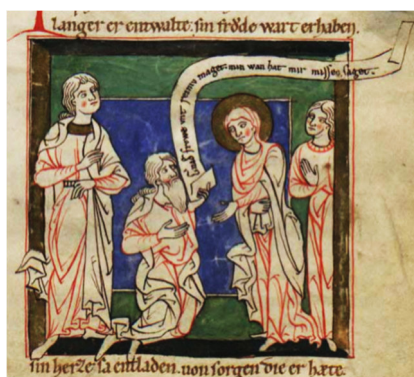 langer er entwalte. sin fröde wart erhaben.
frowe vnt reiniv maget. min wan hat mir misse saget.
sin herze sa entladen. von sorgen die er hate.